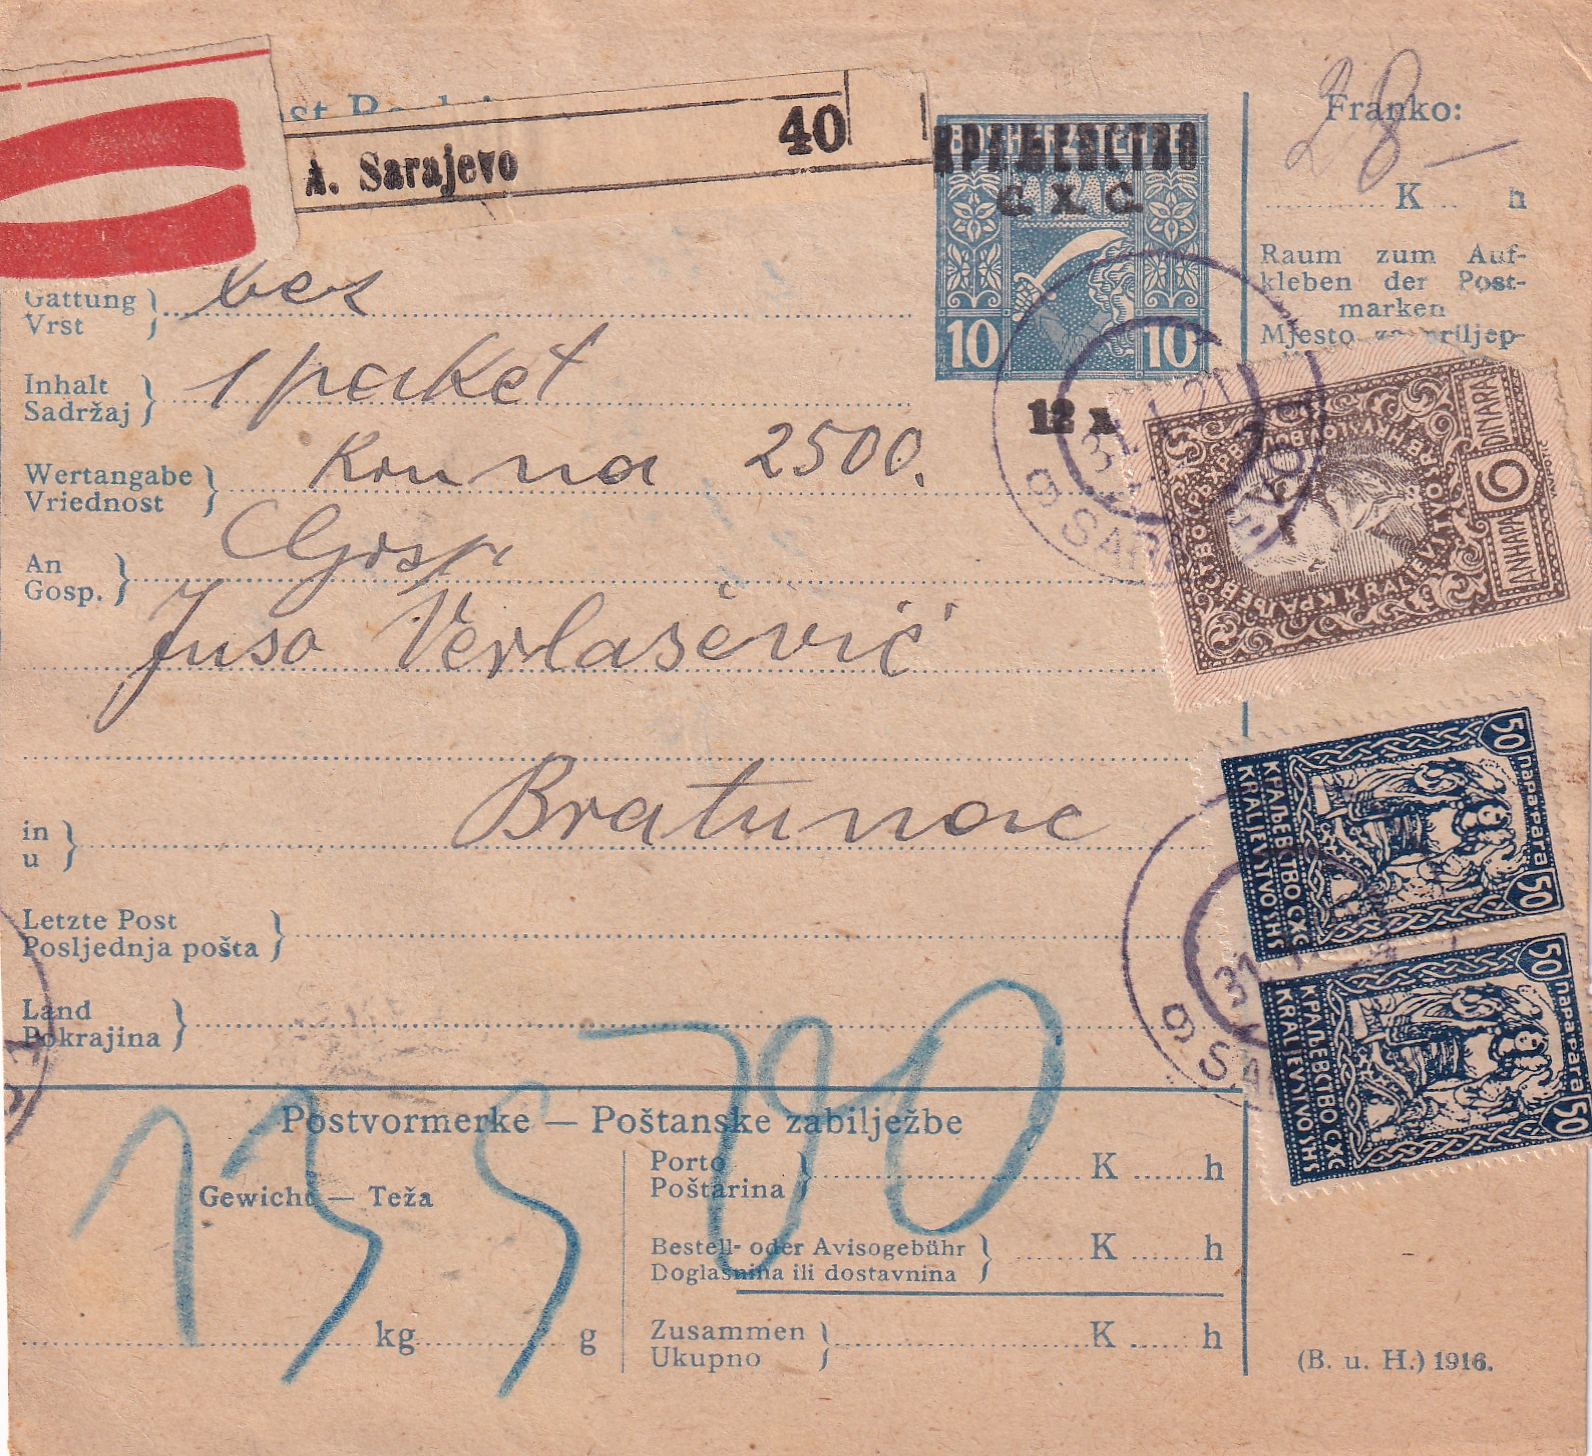 A. Sarajevo 40
Franko:
28 —
K h
BOSNIEN-HERZ
C. X. C.
10 10
12
Raum zum Auf-
kleben der Post-
marken
Mjesto
Gattung
Vrst
bez
Inhalt
Sadržaj
1 paket
Wertangabe
Vriednost
Kruna 2500.
An
Gosp.
Gosp
Juso Verlašević
in
u
Bratunac
Letzte Post
Posljednja pošta
Land
Pokrajina
КРАЉЕВСТВО
KRALEVSTVO
6
ДИНАРА
DINARA
9 SARAJEVO
31
50 пара para 50
КРАЉЕВСТВО СХС
KRALJEVSTVO SHS
9 SA
31
50 пара para 50
КРАЉЕВСТВО СХС
KRALJEVSTVO SHS
Postvormerke — Poštanske zabilježbe
Gewicht — Teža
13 5 700
kg g
Porto
Poštarina
K h
Bestell- oder Avisogebühr
Doglasnina ili dostavnina
K h
Zusammen
Ukupno
K h
(B. u. H.) 1916.